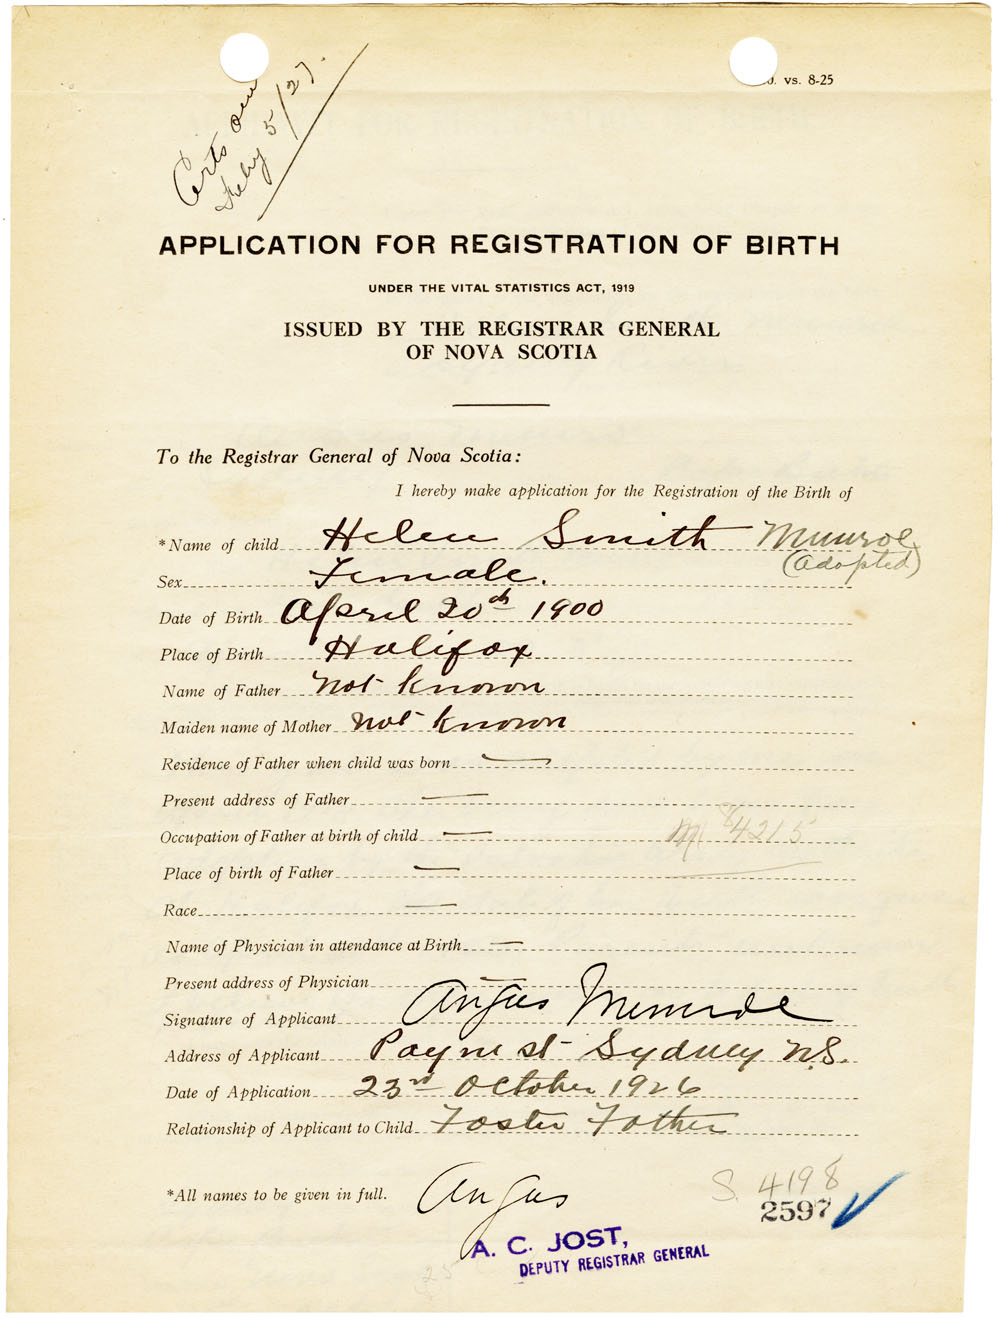 Certs
Feby 5/27.
vs. 8-25
APPLICATION FOR REGISTRATION OF BIRTH
UNDER THE VITAL STATISTICS ACT, 1919
ISSUED BY THE REGISTRAR GENERAL
OF NOVA SCOTIA
To the Registrar General of Nova Scotia:
I hereby make application for the Registration of the Birth of
*Name of child Helen Smith Munroe
(adopted)
Sex Female.
Date of Birth April 20th 1900
Place of Birth Halifax
Name of Father Not known
Maiden name of Mother Not known
Residence of Father when child was born —
Present address of Father —
Occupation of Father at birth of child —
M 84215
Place of birth of Father —
Race —
Name of Physician in attendance at Birth —
Present address of Physician —
Signature of Applicant Angus Munroe
Address of Applicant Payne st Sydney N.S.
Date of Application 23rd October 1926
Relationship of Applicant to Child Foster Father
*All names to be given in full. Angus
S. 4198
2597
A. C. JOST,
DEPUTY REGISTRAR GENERAL